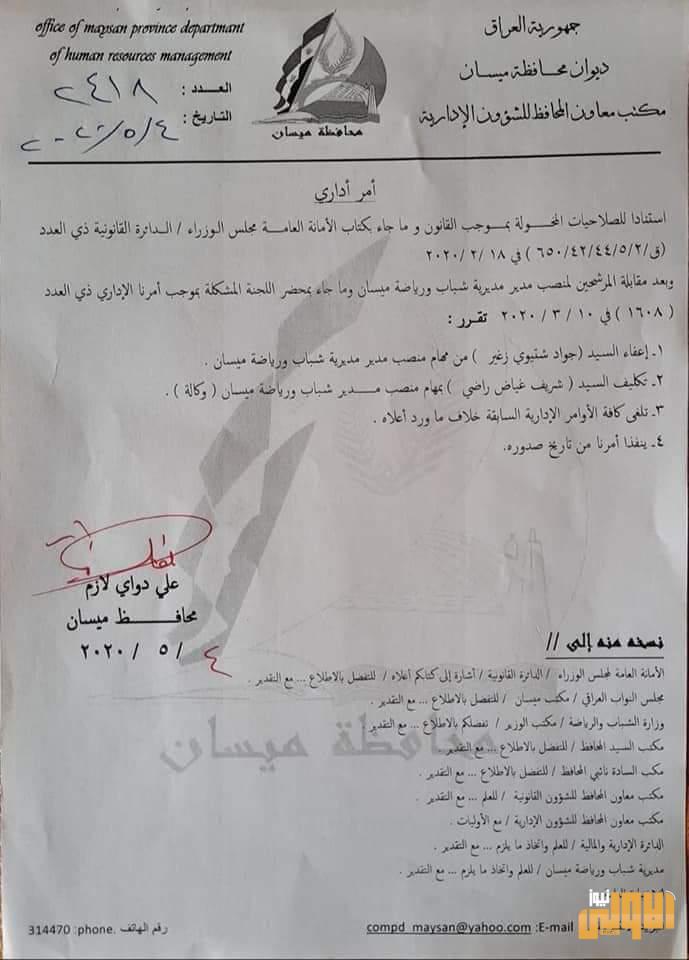 جمهورية العراق
ديوان محافظة ميسان
مكتب معاون المحافظ للشؤون الإدارية
office of maysan province departmant
of human resources management
العدد : ٢٤١٨
التاريخ : ٢٠٢٠/٥/٤
محافظة ميسان
أمر أداري
استنادا للصلاحيات المخولة بموجب القانون و ما جاء بكتاب الأمانة العامة مجلس الوزراء / الدائرة القانونية ذي العدد
(ق/٢/٥/٤٤/٤٢/٦٥٠ ) في ١٨ /٢ /٢٠٢٠
وبعد مقابلة المرشحين لمنصب مدير مديرية شباب ورياضة ميسان وما جاء بمحضر اللجنة المشكلة بموجب أمرنا الإداري ذي العدد
( ١٦٠٨ ) في ١٠ / ٣ / ٢٠٢٠ تقرر :
١ـ إعفاء السيد (جواد شتيوي زغير ) من مهام منصب مدير مديرية شباب ورياضة ميسان .
٢ـ تكليف السيد ( شريف غياض راضي ) بمهام منصب مدير شباب ورياضة ميسان ( وكالة ) .
٣ـ تلغى كافة الأوامر الإدارية السابقة خلاف ما ورد أعلاه .
٤ـ ينفذا أمرنا من تاريخ صدوره.
علي دواي لازم
محافظ ميسان
٤ / ٥ / ٢٠٢٠
نسخه منه إلى //
الأمانة العامة لمجلس الوزراء / الدائرة القانونية / أشارة إلى كتابكم أعلاه / للتفضل بالاطلاع ... مع التقدير .
مجلس النواب العراقي / مكتب ميسان / للتفضل بالاطلاع ... مع التقدير .
وزارة الشباب والرياضة / مكتب الوزير / تفضلكم بالاطلاع ... مع التقدير .
مكتب السيد المحافظ / للتفضل بالاطلاع ... مع التقدير .
مكتب السادة نائبي المحافظ / للتفضل بالاطلاع ... مع التقدير .
مكتب معاون المحافظ للشؤون القانونية / للعلم ... مع التقدير .
مكتب معاون المحافظ للشؤون الإدارية / مع الأوليات .
الدائرة الإدارية والمالية / للعلم واتخاذ ما يلزم ... مع التقدير .
مديرية شباب ورياضة ميسان / للعلم واتخاذ ما يلزم ... مع التقدير .
محافظة ميسان
E-mail: compd_maysan@yahoo.com
رقم الهاتف .phone: 314470
الاولى نيوز